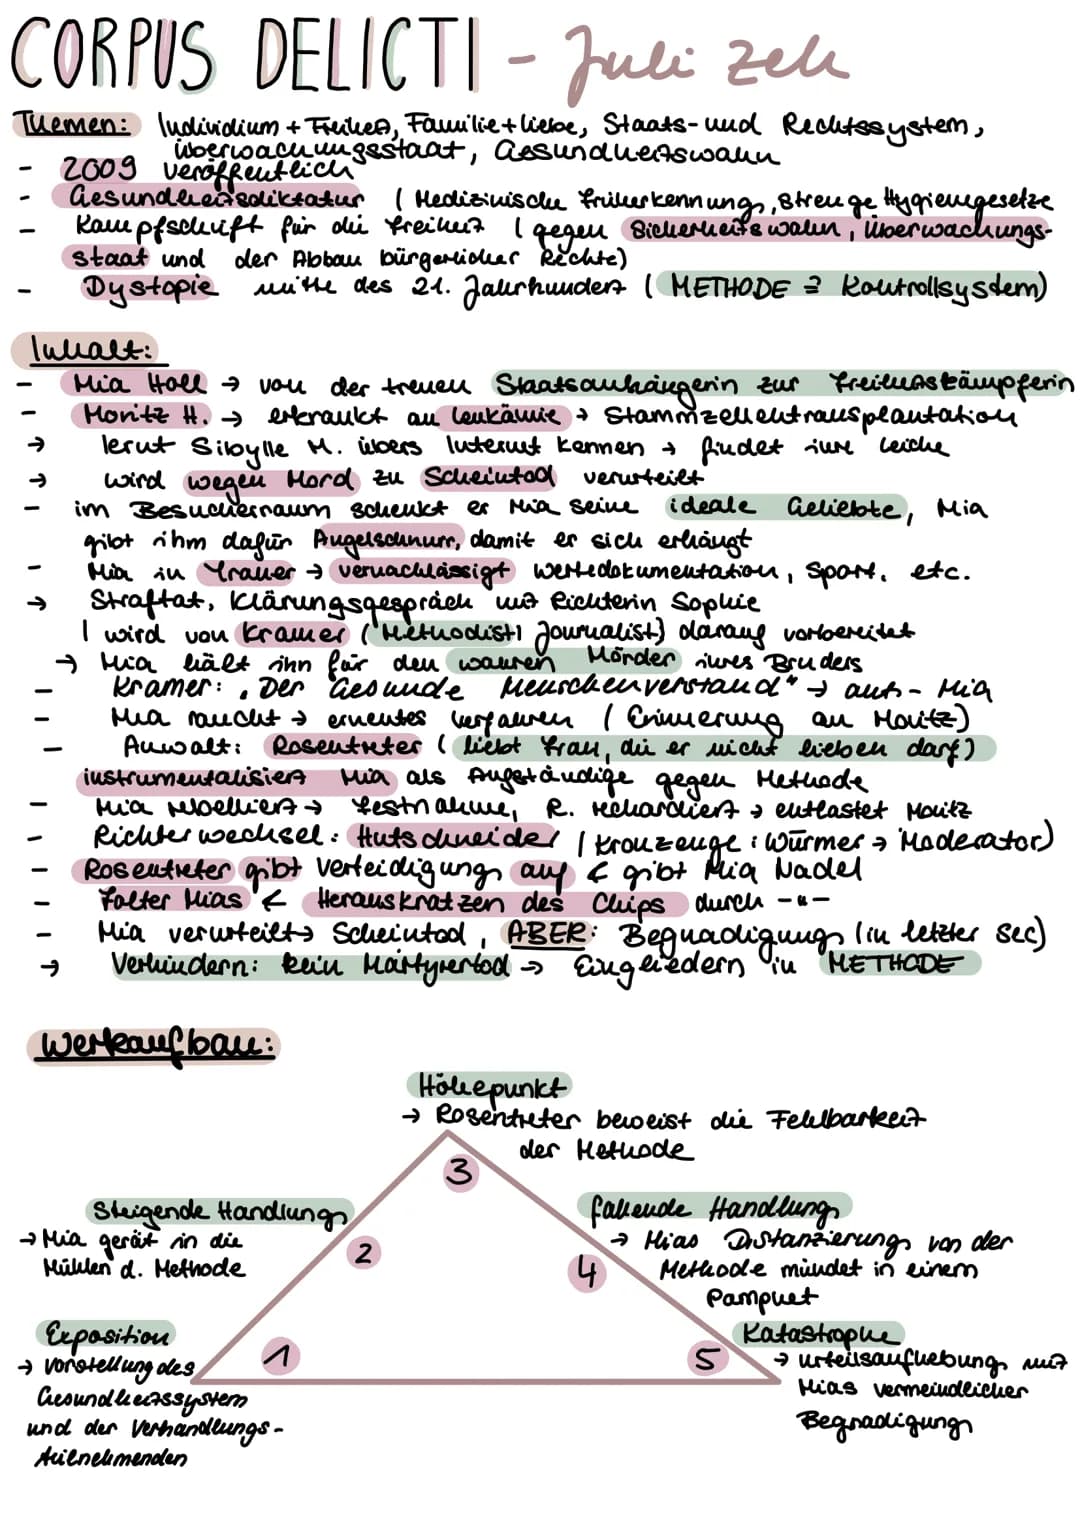 CORPUS DELICTI - Juli Zeh
Themen: Individium + Freiheit, Familie + Liebe, Staats- und Rechtssystem,
Überwachungsstaat, Gesundheitswahn
- 2009 veröffentlich
- Gesundheitsdiktatur ( Medizinische Früherkennung, strenge Hygienegesetze
- Kampfschrift für die Freiheit ( gegen Sicherheitswahn, Überwachungs-
staat und der Abbau bürgerlicher Rechte)
- Dystopie mitte des 21. Jahrhundert ( METHODE = Kontrollsystem)
Inhalt:
- Mia Holl → von der treuen Staatsanhängerin zur Freiheitskämpferin
- Moritz H. → erkrankt an Leukämie → Stammzellentransplantation
→ lernt Sibylle M. übers Internet kennen → findet ihre Leiche
→ wird wegen Mord zu Scheintod verurteilt
- im Besucherraum schenkt er Mia seine ideale Geliebte, Mia
gibt ihm dafür Angelschnurr, damit er sich erhängt
- Mia in Trauer → vernachlässigt Wertedokumentation, Sport, etc.
→ Straftat, Klärungsgespräch mit Richterin Sophie
| wird von Kramer (Methodist| Journalist) darauf vorbereitet
→ Mia hält ihn für den wahren Mörder ihres Bruders
- Kramer: „Der Gesunde Menschenverstand" → anti-Mia
- Mia raucht → erneutes Verfahren ( Erinnerung an Moritz)
- Anwalt: Rosentreter ( liebt Frau, die er nicht lieben darf)
instrumentalisiert Mia als Aufständige gegen Methode
- Mia rebelliert → Festnahme, R. rechardiert → entlastet Moritz
- Richterwechsel: Hutschneider | Kronzeuge: Würmer → Moderator)
- Rosentreter gibt Verteidigung auf & gibt Mia Nadel
- Folter Mias & Herauskratzen des Chips durch -"-
- Mia verurteilt → Scheintod, ABER: Begnadigung (in letzter sec)
→ Verhindern: kein Märtyrertod → Eingliedern in METHODE
Werkaufbau:
Höhepunkt
→ Rosentreter beweist die Fehlbarkeit
der Methode
3
Steigende Handlung
→ Mia gerät in die
Mühlen d. Methode
2
fallende Handlung
→ Mias Distanzierung von der
Methode mündet in einem
Pamphet
4
Exposition
→ Vorstellung des
Gesundheitssystem
und der Verhandlungs-
teilnehmenden
1
Katastrophe
→ Urteilsaufhebung mit
Mias vermeindlicher
Begnadigung
5